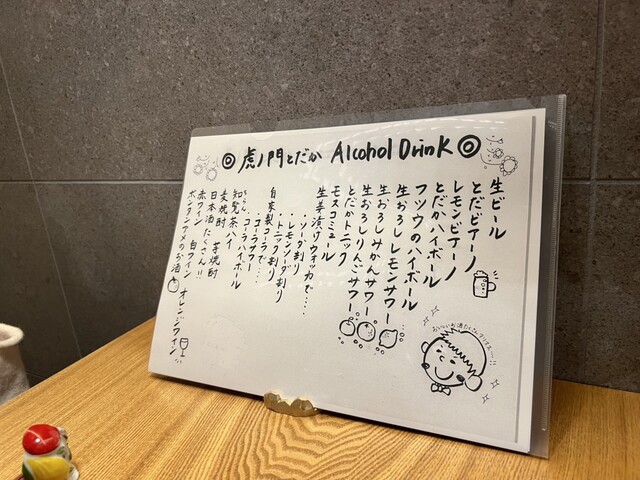 ◎ 虎ノ門とだか Alcohol Drink ◎
生ビール
とだビアーノ
レモンビアーノ
とだかハイボール
フツウのハイボール
生おろしレモンサワー
生おろしみかんサワー
生おろしりんごサワー
とだかトニック
モスコミュール
生姜漬けウォッカで…
・ソーダ割り
・レモンソーダ割り
・トニック割り
自家製コーラで…
・コーラサワー
・コーラハイボール
知覧茶ハイ
麦焼酎 芋焼酎
日本酒たくさん!!
赤ワイン 白ワイン オレンジワイン
ボンタンアメのお酒